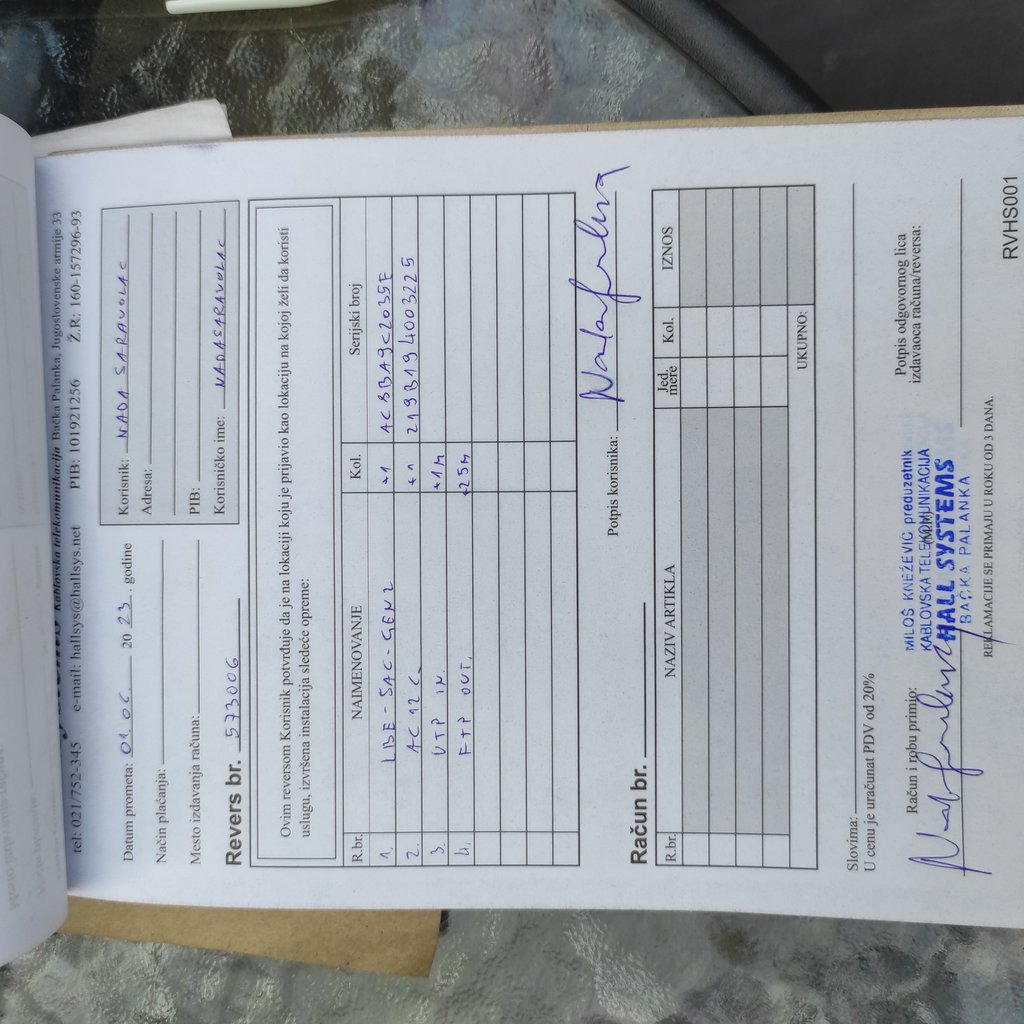 Kablovska telekomunikacija Bačka Palanka, Jugoslovenske armije 33
tel: 021/752-345 e-mail: hallsys@hallsys.net PIB: 101921256 Ž.R: 160-157296-93
Datum prometa: 01.06. 2023. godine
Način plaćanja:
Mesto izdavanja računa:
Korisnik: NADA SARAVOLAC
Adresa:
PIB:
Korisničko ime: NADASARAVOLAC
Revers br. 573006
Ovim reversom Korisnik potvrđuje da je na lokaciji koju je prijavio kao lokaciju na kojoj želi da koristi
uslugu, izvršena instalacija sledeće opreme:
R.br. NAIMENOVANJE Kol. Serijski broj
1. LBE-5AC-GEN2 +1 AC8BA9C2035F
2. AC12C +1 2193194003225
3. UTP IN. +1m
4. FTP OUT. +25m
Potpis korisnika:
Račun br.
R.br. NAZIV ARTIKLA Jed. mere Kol. IZNOS
UKUPNO:
Slovima:
U cenu je uračunat PDV od 20%
Račun i robu primio:
MILOŠ KNEŽEVIĆ preduzetnik
KABLOVSKA TELEKOMUNIKACIJA
HALL SYSTEMS
BAČKA PALANKA
Potpis odgovornog lica
izdavaoca računa/reversa:
REKLAMACIJE SE PRIMAJU U ROKU OD 3 DANA.
RVHS001